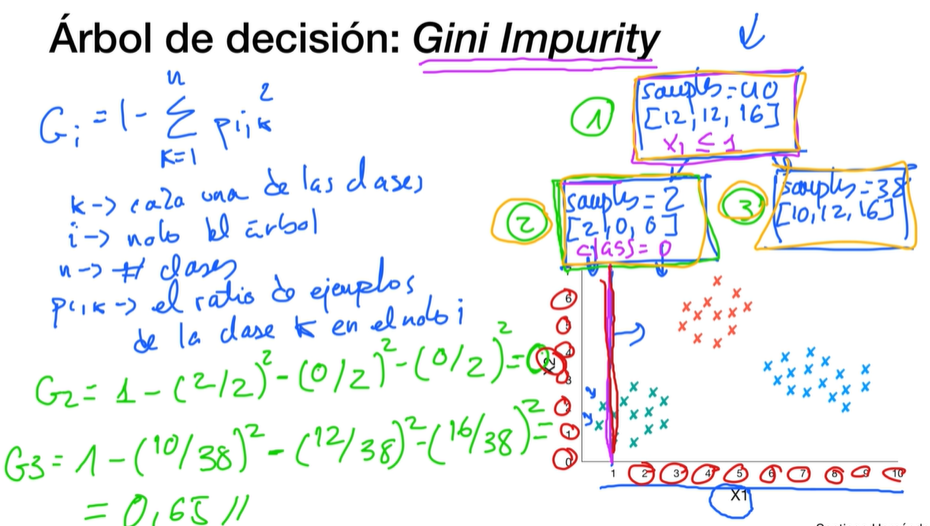 Árbol de decisión: Gini Impurity
n
G i = 1 - Σ p i,k ²
k=1
k → cada una de las clases
i → nodo del árbol
n → # clases
p i,k → el ratio de ejemplos
de la clase k en el nodo i
G2 = 1 - (2/2)² - (0/2)² - (0/2)² = 0
G3 = 1 - (10/38)² - (12/38)² - (16/38)² =
= 0,65 //
1
samples = 40
[12, 12, 16]
x₁ ≤ 1
2
samples = 2
[2, 0, 0]
class = 0
3
samples = 38
[10, 12, 16]
6
5
4
3
1
0
X2
1 2 3 4 5 6 7 8 9 10
X1